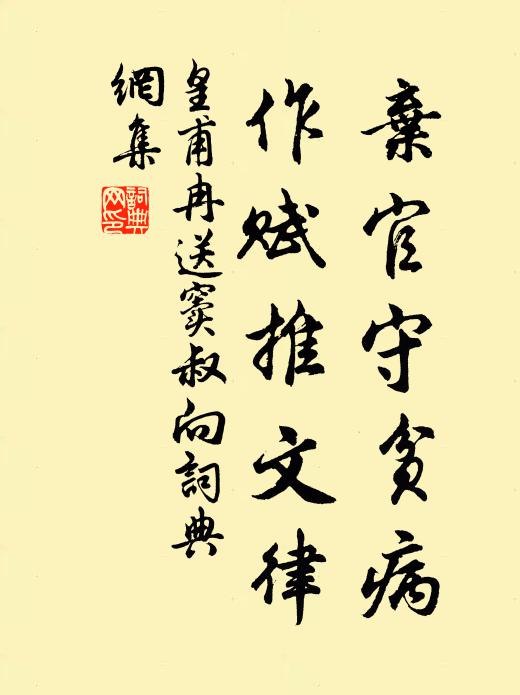 棄官守貧病
作賦推文律
皇甫冉送竇叔向詞典
網集
詞典
网印